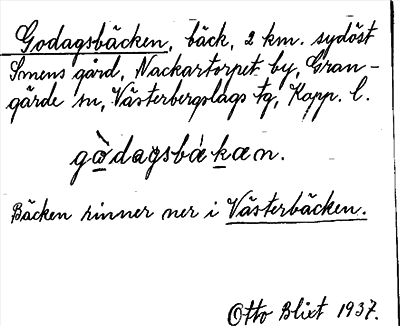 Godagsbäcken, bäck, 2 km. sydöst
Smens gård, Nackartorpet by, Gran-
gärde sn, Västerbergslags tg, Kopp. l.
gòdagsbàkæn.
Bäcken rinner ner i Västerbäcken.
Otto Blixt 1937.